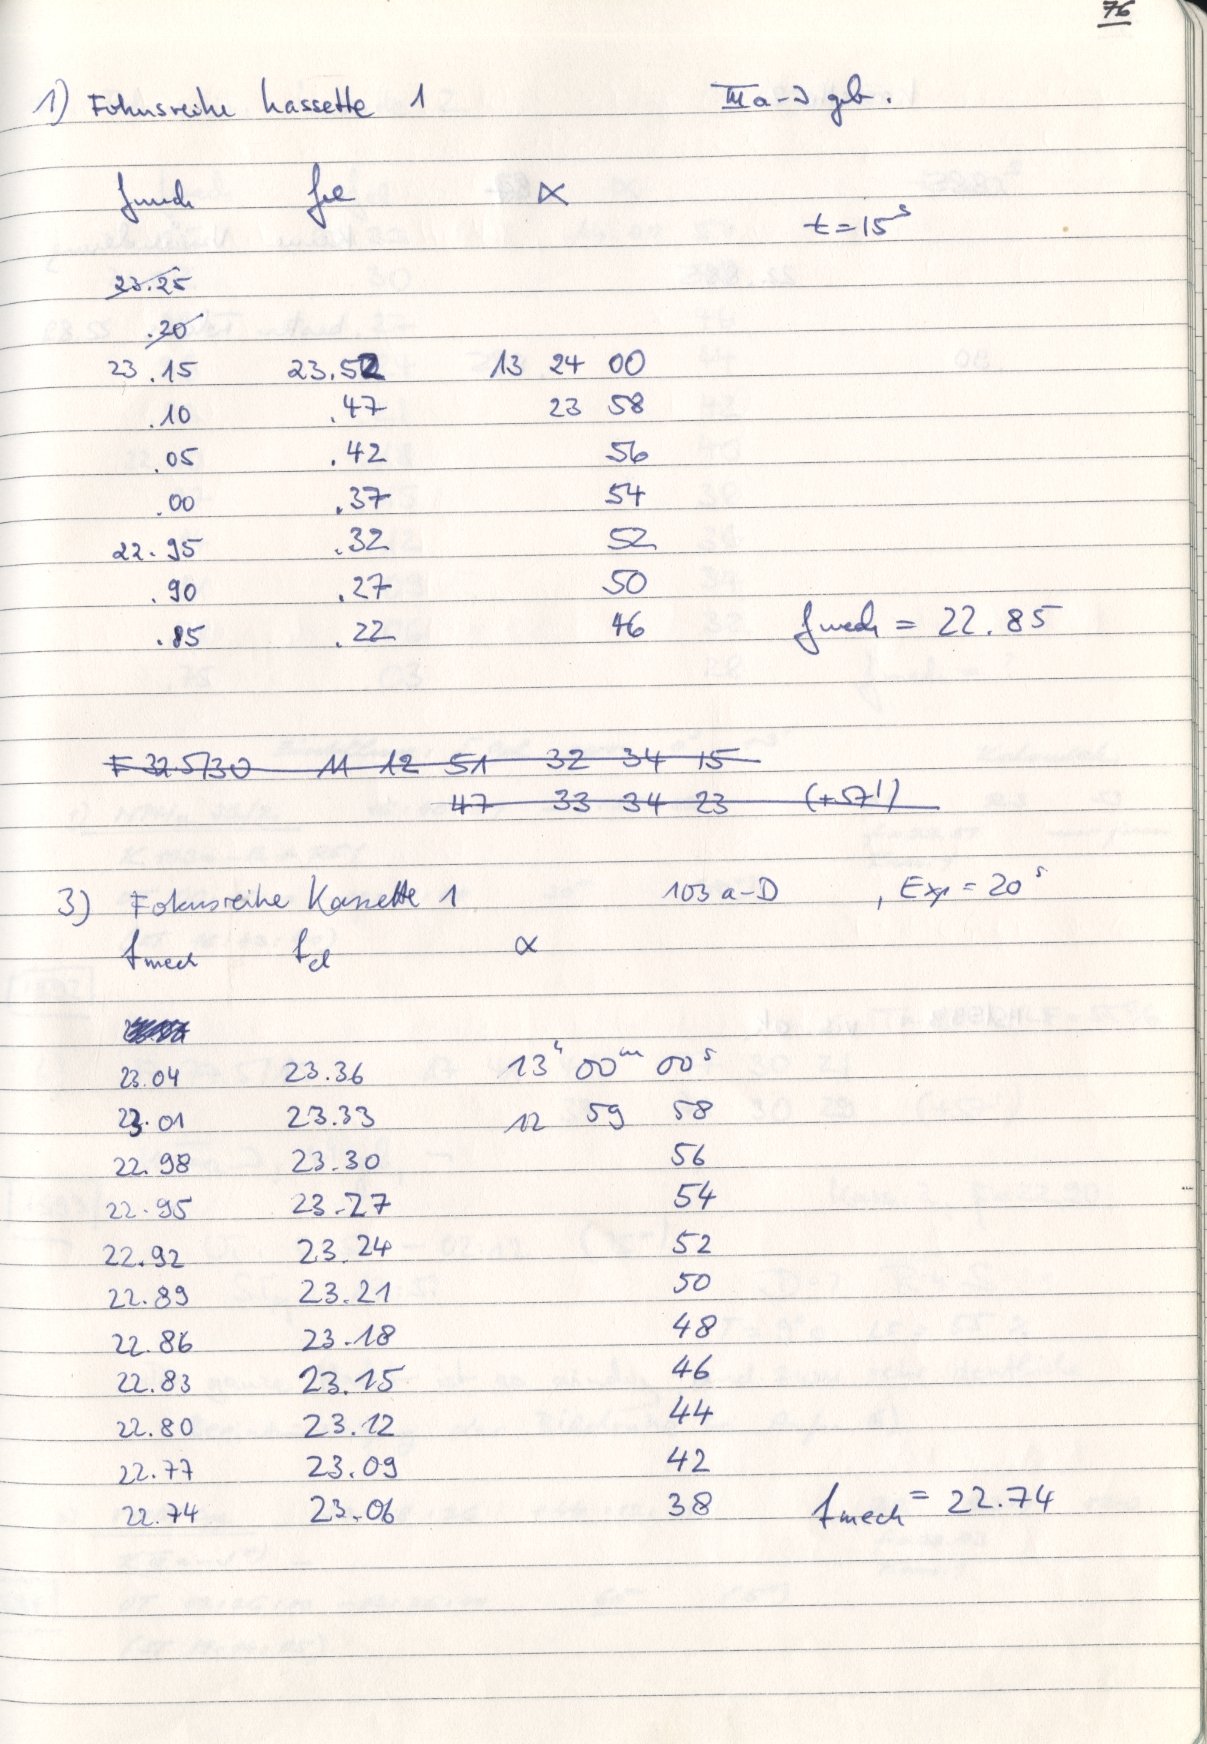 76
1) Fokusreihe Kassette 1 IIIa-D geb.
fmech fel α
t=15s
23.25
.20
23.15 23.52 13 24 00
.10 .47 23 58
.05 .42 56
.00 .37 54
22.95 .32 52
.90 .27 50
.85 .22 46 fmech = 22.85
F 32.5/30 11 12 51 32 34 15
47 33 34 23 (+57')
3) Fokusreihe Kassette 1 103a-D , Exp = 20s
fmech fel α
23.04 23.36 13h 00m 00s
23.01 23.33 12 59 58
22.98 23.30 56
22.95 23.27 54
22.92 23.24 52
22.89 23.21 50
22.86 23.18 48
22.83 23.15 46
22.80 23.12 44
22.77 23.09 42
22.74 23.06 38 fmech = 22.74